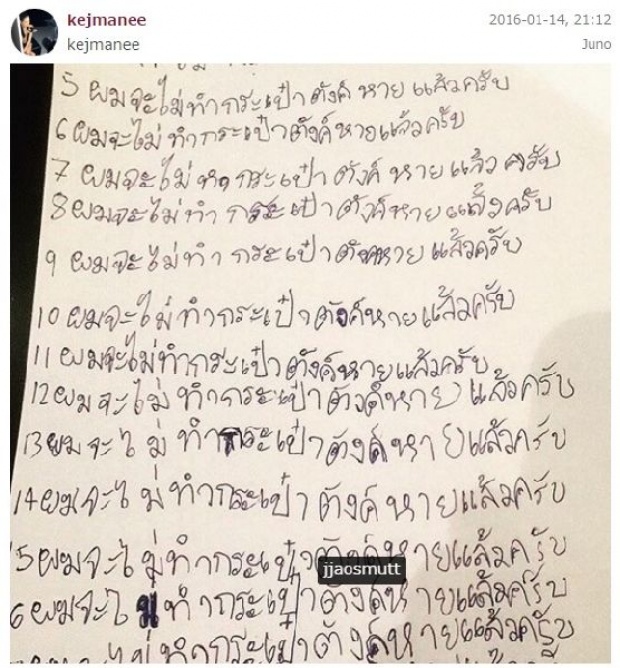 kejmanee
2016-01-14, 21:12
kejmanee
Juno
5 ผมจะไม่ทำกระเป๋าตังค์หายแล้วครับ
6 ผมจะไม่ทำกระเป๋าตังค์หายแล้วครับ
7 ผมจะไม่ทำกระเป๋าตังค์หายแล้วครับ
8 ผมจะไม่ทำกระเป๋าตังค์หายแล้วครับ
9 ผมจะไม่ทำกระเป๋าตังค์หายแล้วครับ
10 ผมจะไม่ทำกระเป๋าตังค์หายแล้วครับ
11 ผมจะไม่ทำกระเป๋าตังค์หายแล้วครับ
12 ผมจะไม่ทำกระเป๋าตังค์หายแล้วครับ
13 ผมจะไม่ทำกระเป๋าตังค์หายแล้วครับ
14 ผมจะไม่ทำกระเป๋าตังค์หายแล้วครับ
5 ผมจะไม่ทำกระเป๋าตังค์หายแล้วครับ
jjaosmutt
6 ผมจะไม่ทำกระเป๋าตังค์หายแล้วครับ
ไม่ทำกระเป๋าตังค์หายแล้วครับ